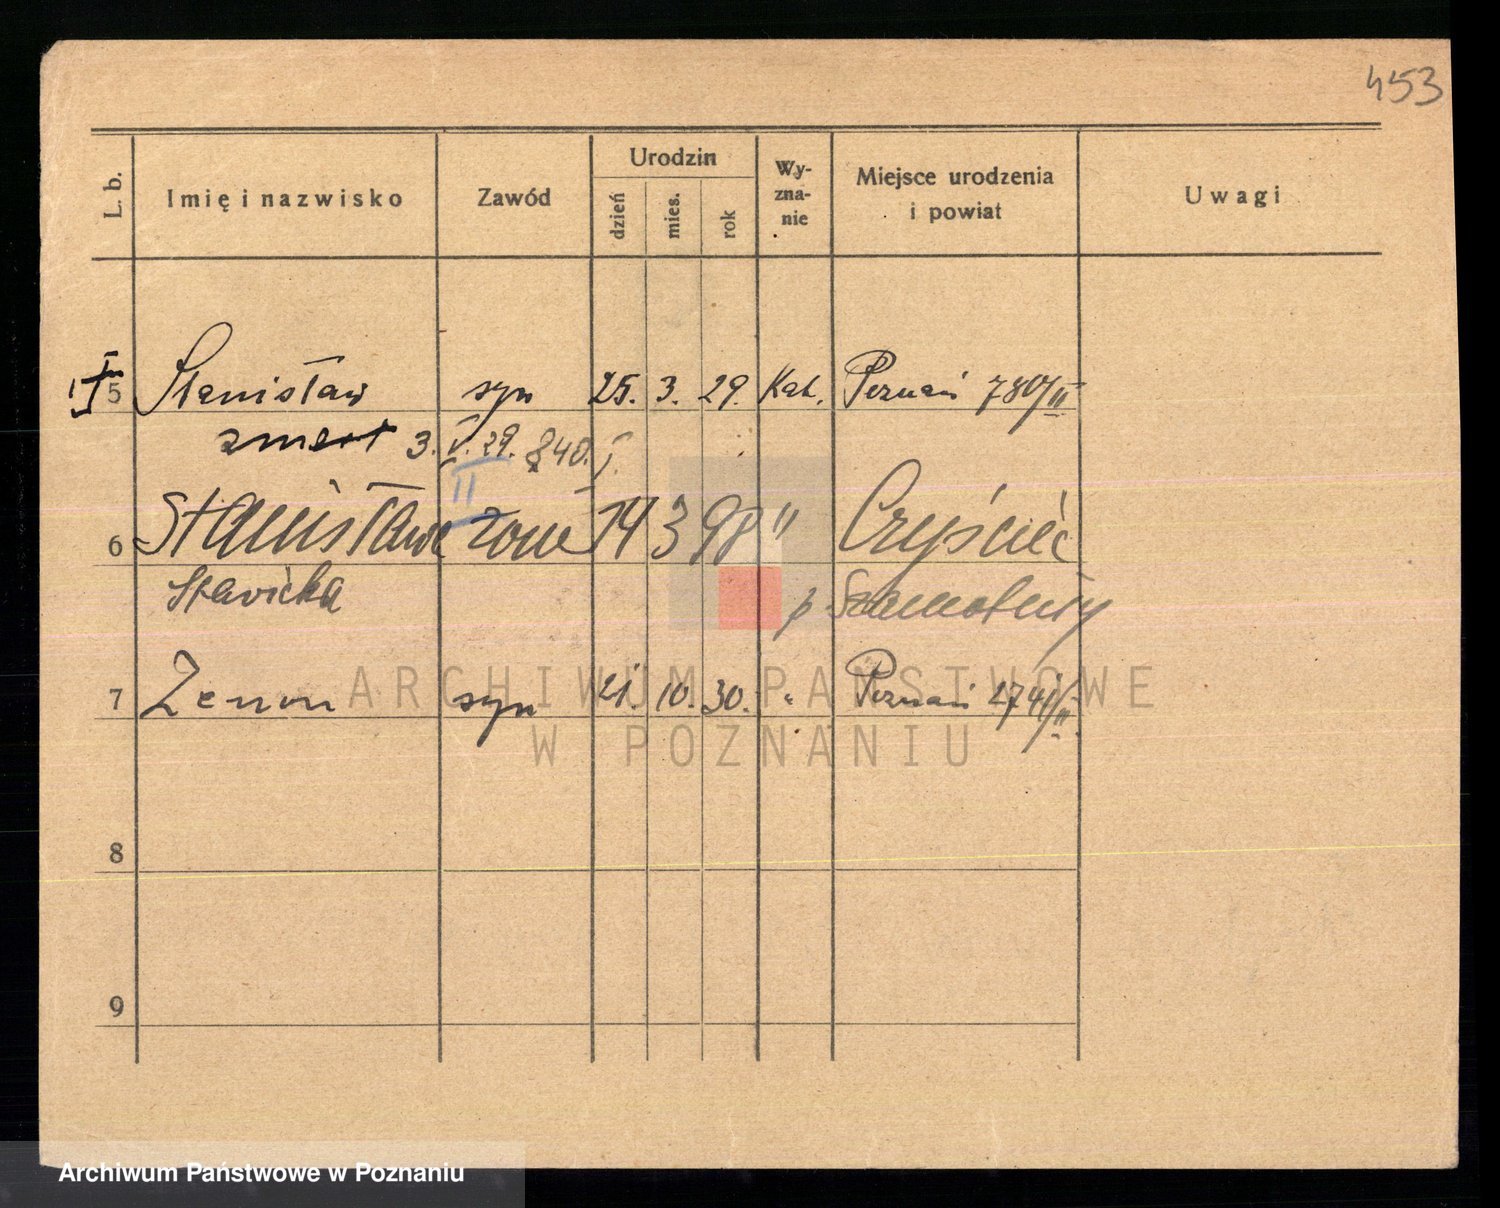 453
L. b. Imię i nazwisko Zawód Urodzin dzień mies. rok Wy-zna-nie Miejsce urodzenia i powiat Uwagi
5 Stanisław syn 25. 3. 29. Kat. Poznań 780/II
zmarł 3. V. 29. 840. I.
II
6 Stanisława żona 14 3 98 " Czyściec
Stavicka p Szamotuły
7 Zenon syn 21. 10. 30. " Poznań 2741/II.
8
9
ARCHIWUM PAŃSTWOWE
W POZNANIU
Archiwum Państwowe w Poznaniu